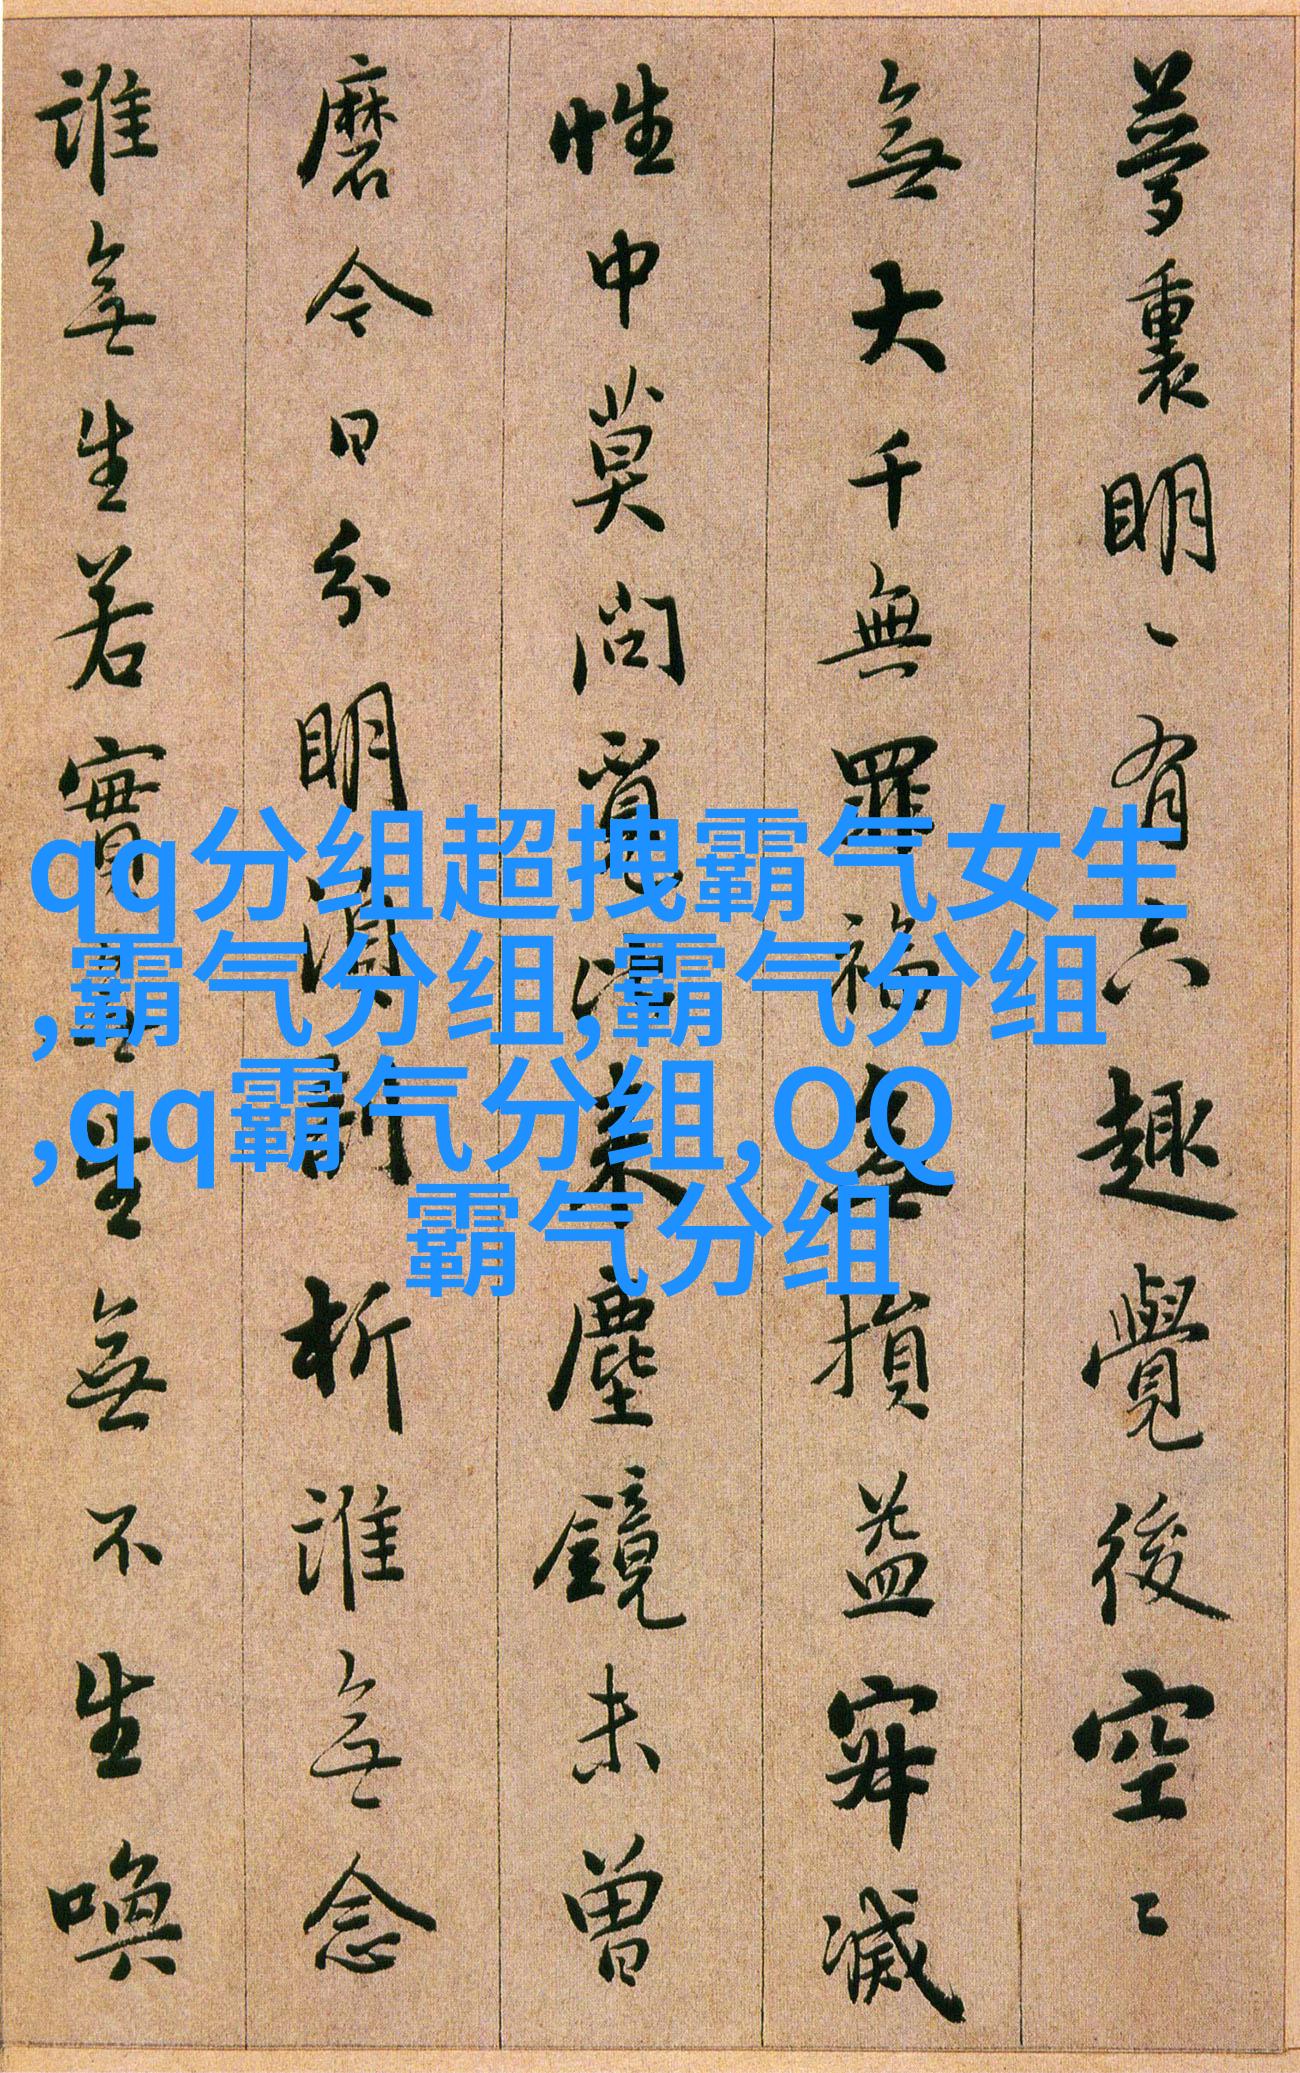 夢裏明〻有六趣覺後空〻
無大千無罪福無損益寂滅
性中莫問覓比來塵鏡未曾
磨今日分明須剖析誰無念
誰無生若實無生無不生喚
qq分组超拽霸气女生
,霸气分组,霸气分组
,qq霸气分组,QQ
霸气分组